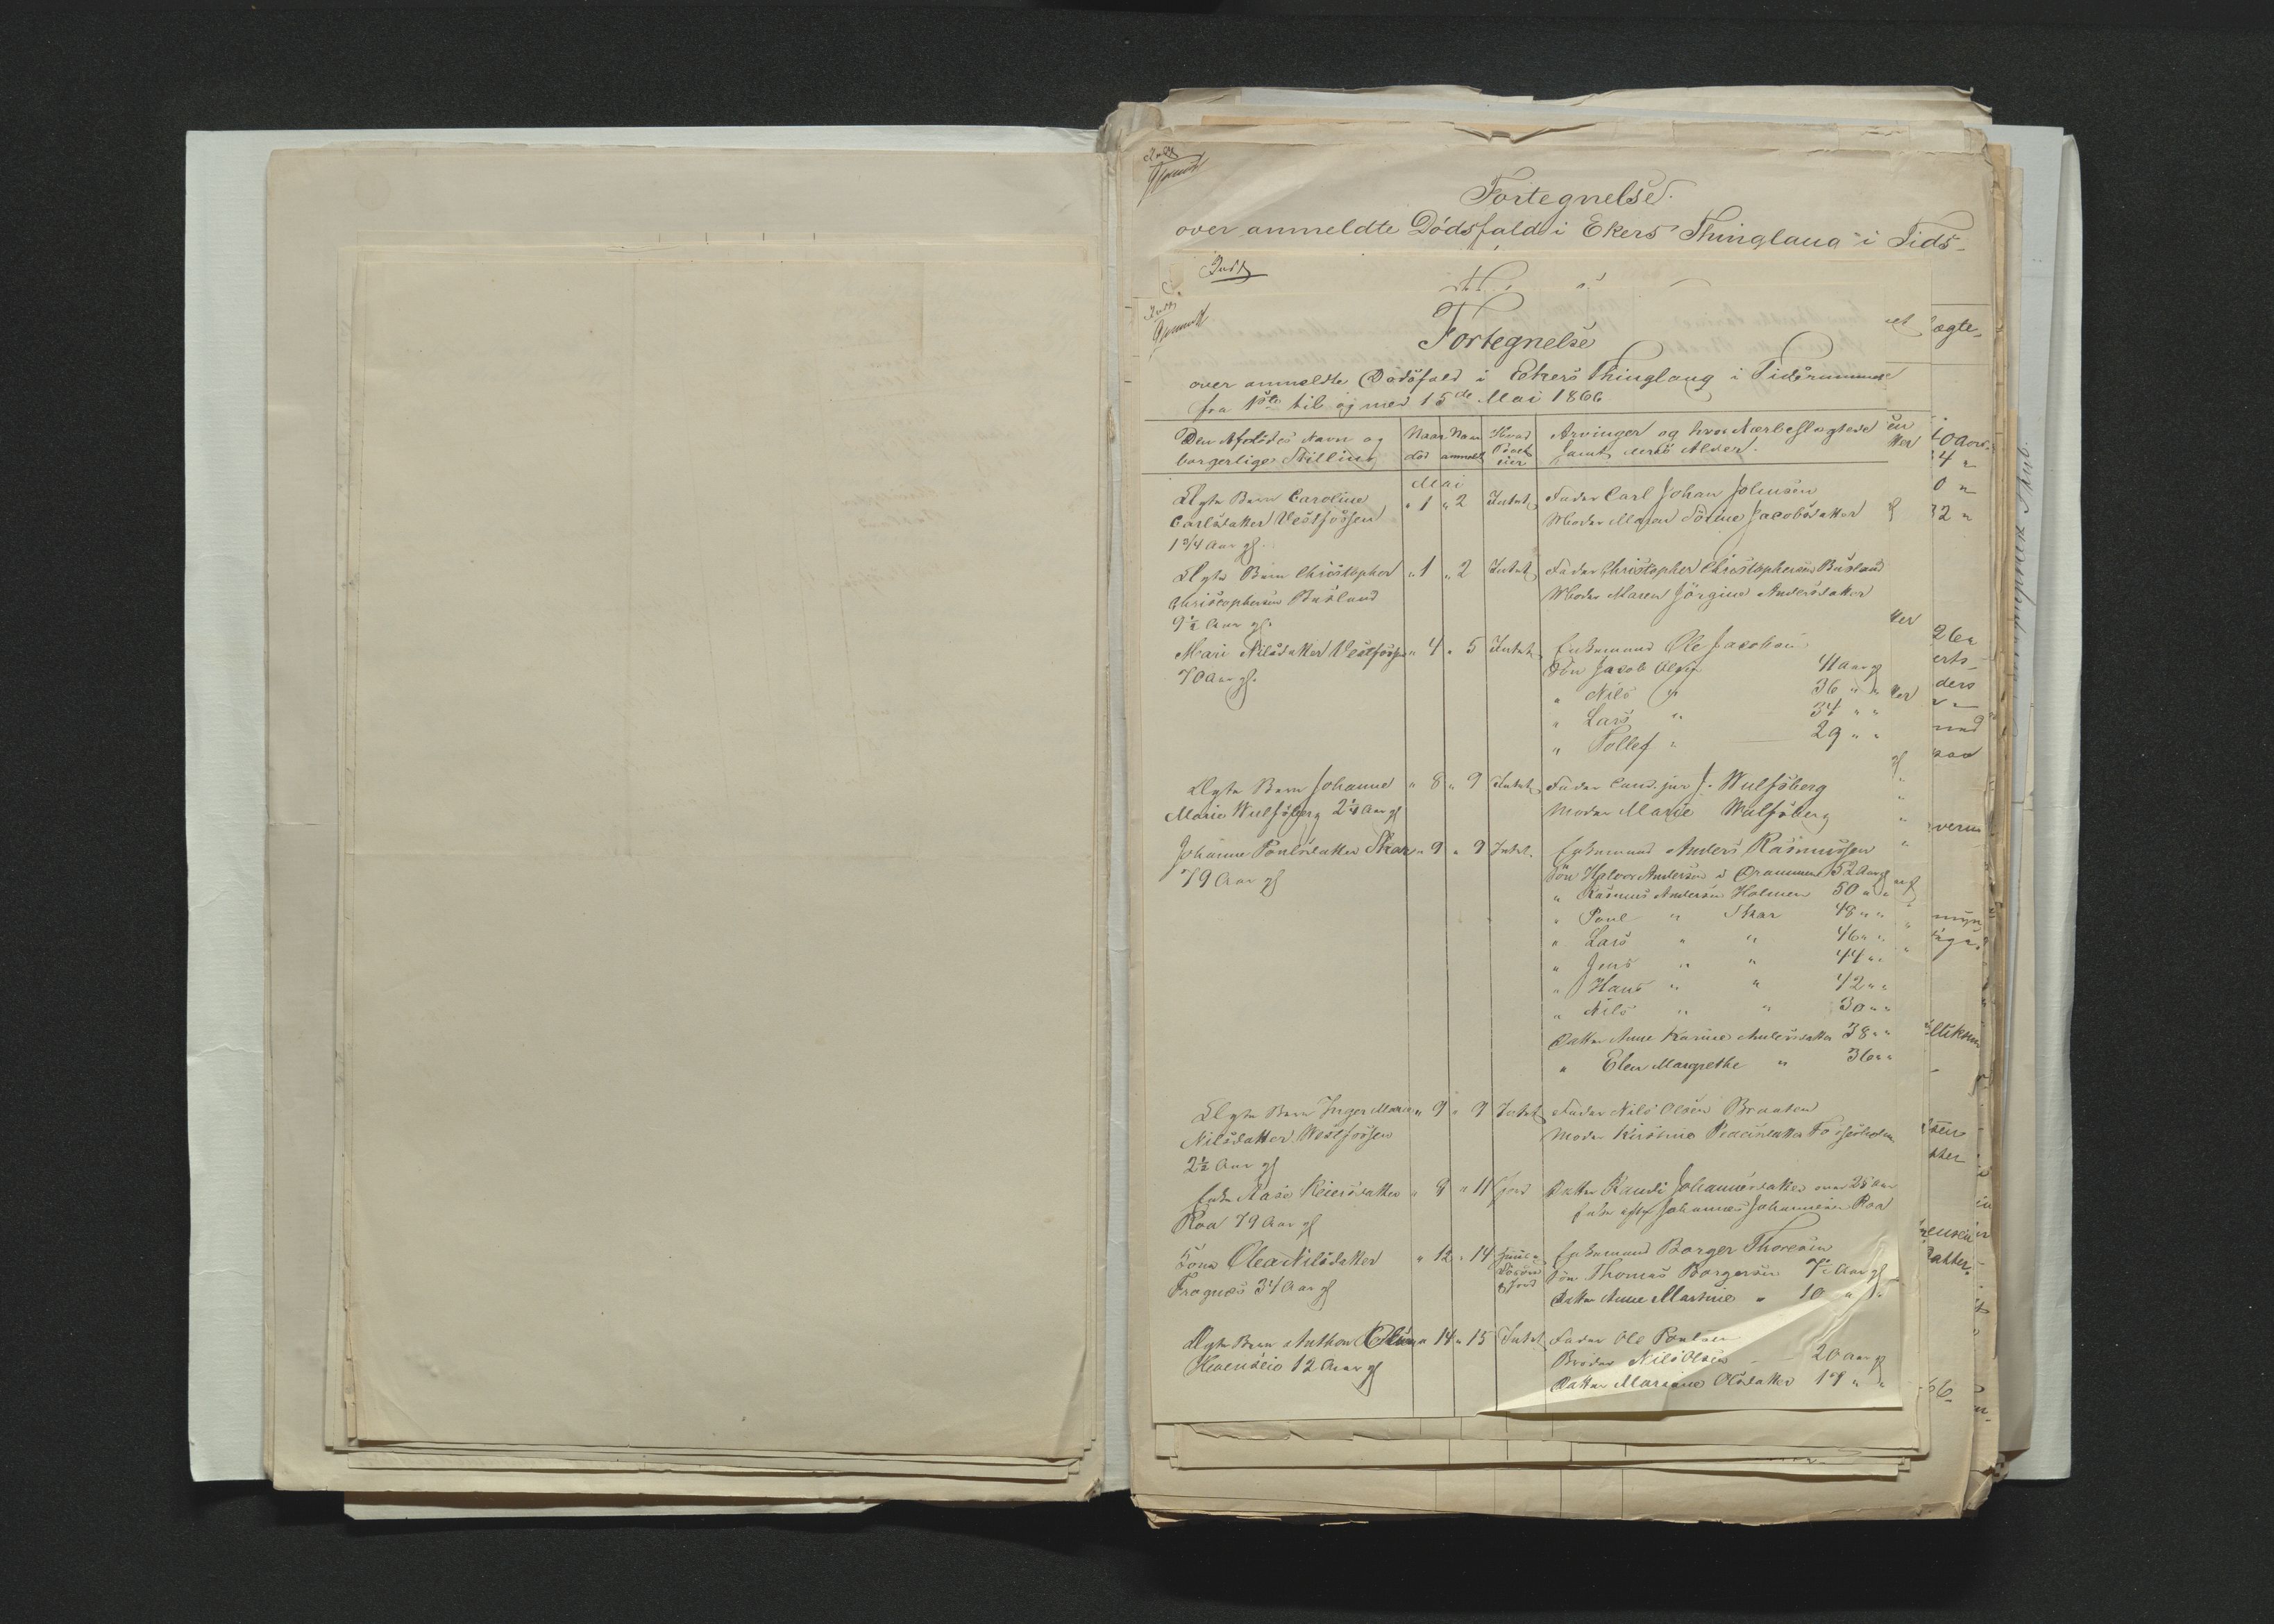 Fortegnelse.
over anmeldte Dødsfald i Ekers Thinglaug i Tids-
Indt
Fortegnelse
over anmeldte Dødsfald i Ekers Thinglaug i Tidsrummet
fra 1ste til og med 15de Mai 1866
Den Afdødes Navn og Naar Naar Hvad Arvinger og hvor Nærbeslægtede
borgerlige Stilling død anmeldt samt deres Alder.
Mai
Ægte Barn Caroline " 1 " 2 Intet Fader Carl Johan Johnsen
Carlsdatter Vestfossen Moder Maren Sørine Jacobsdatter
1 3/4 Aar gl
Ægte Barn Christopher " 1 " 2 Intet Fader Christopher Christophersen Busland
Christophersen Busland Moder Maren Jørgine Andersdatter
9 1/2 Aar gl.
Mari Nilsdatter Vestfossen " 4 " 5 Intet Enkemand Ole Jacobsen
70 Aar gl. Søn Jacob Olsen 41 Aar gl
" Nils " 36 " "
" Lars " 34 " "
" Tollef " 29 " "
Ægte Barn Johanne " 8 " 9 Intet Fader Cand. jur J. Wulfsberg
Marie Wulfsberg 2 1/4 Aar gl Moder Marie Wulfsberg
Johanne Poulsdatter Skar " 9 " 9 Intet Enkemand Anders Rasmussen
79 Aar gl Søn Halvor Andersen i Drammen 52 Aar gl
" Rasmus Andersen Holmen 50 " "
" Poul " Skar 48 " "
" Lars " " 46 " "
" Jens " " 44 " "
" Hans " " 42 " "
" Nils " " 30 " "
Datter Anne Karine Andersdatter 38 " "
" Elen Margrethe " 36 " "
Ægte Barn Inger Marie " 9 " 9 Intet Fader Nils Olsen Braaten
Nilsdatter Vestfossen Moder Kirstine
2 1/2 Aar gl
Enke Aase Reiersdatter " 8 " 11 Jord Datter Randi Johannesdatter over 25 Aar
Roa 79 Aar gl Enke efter Johannes Johannesen Roa
Kone Olea Nilsdatter " 12 " 14 Enkemand Borger Thoresen
Frognes 34 Aar gl Løsøre & Jord Søn Thomas Borgersen 7 1/2 Aar gl
Datter Anne Martine " 10 " "
Ægte Barn Anthon Olsen " 14 " 15 Intet Fader Ole Poulsen
12 Aar gl Broder Nils Olsen 20 Aar gl
Datter Mariane Olsdatter 17 " "